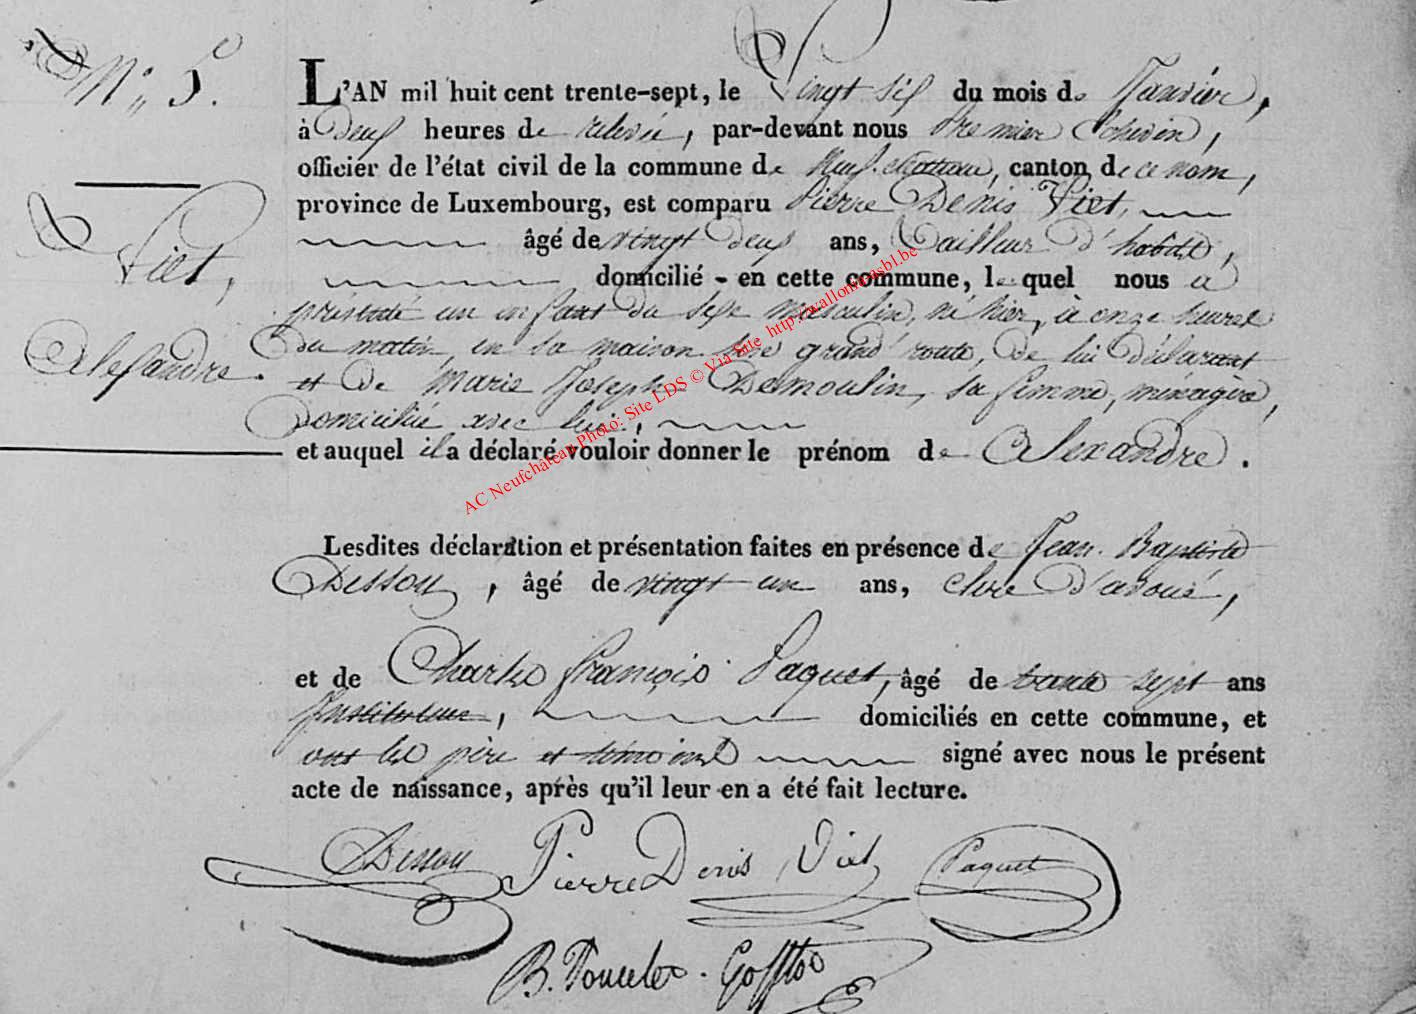 N° 5.
L'AN mil huit cent trente-sept, le Vingt six du mois de Janvier,
à deux heures de relevée, par-devant nous Premier Echevin,
officier de l'état civil de la commune de Neufchateau, canton de ce nom,
province de Luxembourg, est comparu Pierre Denis Viet,
âgé de vingt deux ans, Tailleur d'habits,
Viet,
domicilié - en cette commune, lequel nous a
présenté un enfant du sexe masculin, né hier, à onze heures
du matin, en sa maison, grand' route, de lui déclarant
Alexandre.
et de Marie Joseph Demoulin, sa femme, ménagère,
domiciliée avec lui,
et auquel il a déclaré vouloir donner le prénom de Alexandre.
Lesdites déclaration et présentation faites en présence de Jean Baptiste
Dessoy, âgé de vingt un ans, clerc d'avoué,
et de Charles François Paquet, âgé de trente sept ans
Instituteur, domiciliés en cette commune, et
ont les père et témoins signé avec nous le présent
acte de naissance, après qu'il leur en a été fait lecture.
Dessoy Pierre Denis Viet Paquet
B. Poncelet
AC Neufchâteau Photo: Site LDS © Via Site http://wallonia.asbl.be